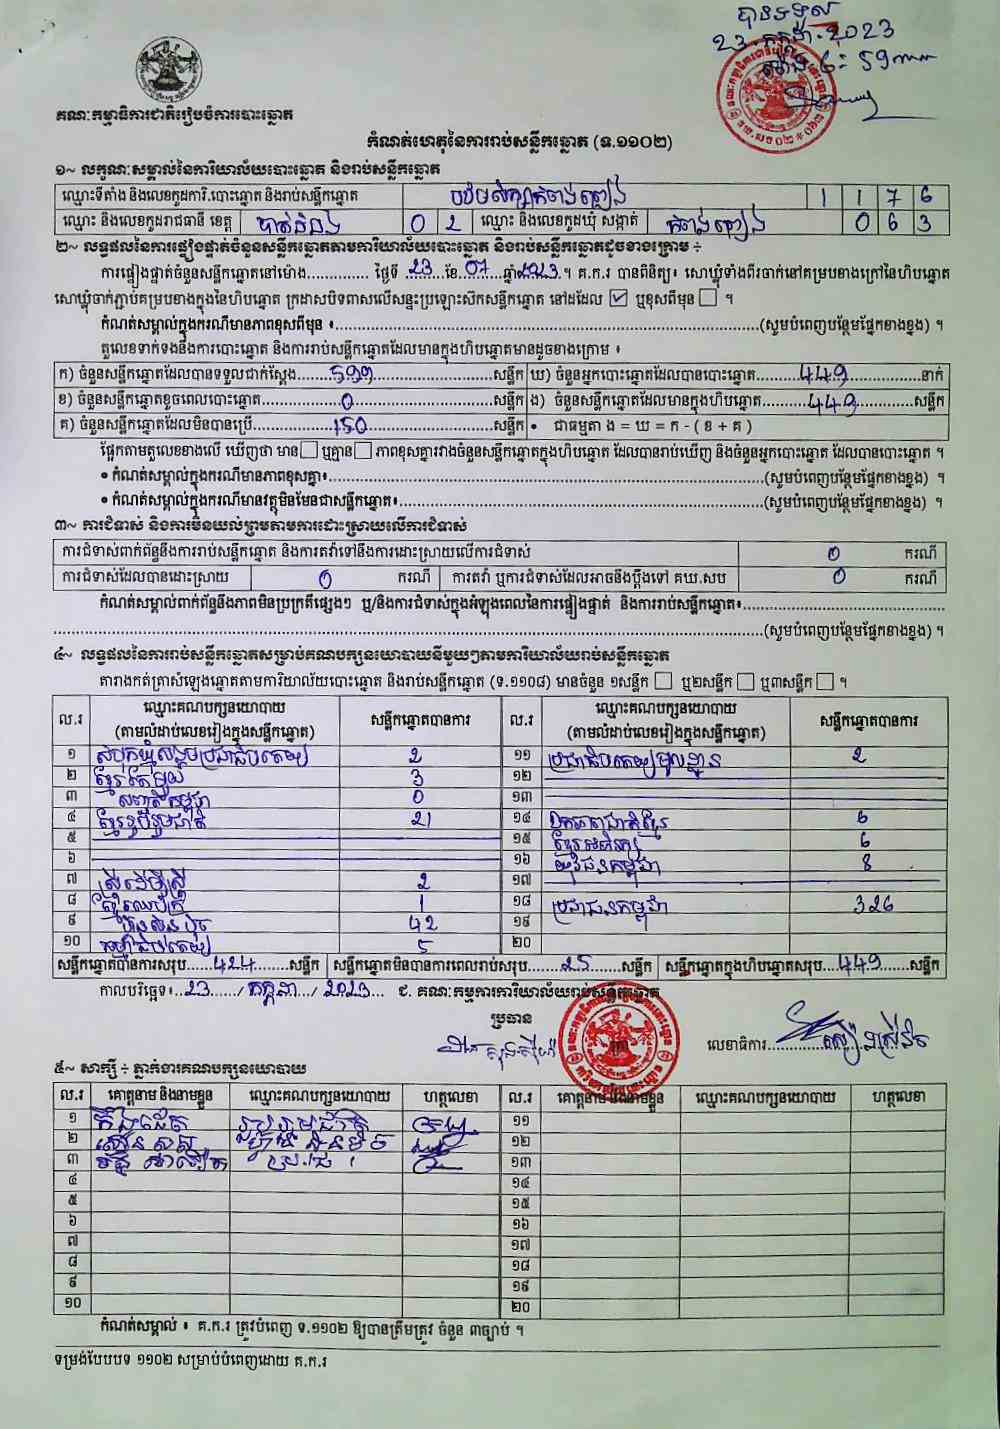 បានទទួល
23.កក្កដា.2023
ម៉ោង 6:59
គណៈកម្មាធិការជាតិរៀបចំការបោះឆ្នោត
កំណត់ហេតុនៃការរាប់សន្លឹកឆ្នោត (ទ.១១០២)
១~ លក្ខណៈសម្គាល់នៃការិយាល័យបោះឆ្នោត និងរាប់សន្លឹកឆ្នោត
ឈ្មោះទីតាំង និងលេខកូដការិ.បោះឆ្នោត និងរាប់សន្លឹកឆ្នោត 1 1 7 6
ឈ្មោះ និងលេខកូដរាជធានី ខេត្ត បាត់ដំបង 0 2 ឈ្មោះ និងលេខកូដឃុំ សង្កាត់ 0 6 3
២~ លទ្ធផលនៃការផ្ទៀងផ្ទាត់ចំនួនសន្លឹកឆ្នោតតាមការិយាល័យបោះឆ្នោត និងរាប់សន្លឹកឆ្នោតដូចខាងក្រោម ÷
ការផ្ទៀងផ្ទាត់ចំនួនសន្លឹកឆ្នោតនៅម៉ោង............. ថ្ងៃទី 23 ខែ 07 ឆ្នាំ 2023 ។ គ.ក.រ បានពិនិត្យ៖ សោឃ្លុំទាំងពីរចាក់នៅគម្របខាងក្រៅនៃហិបឆ្នោត
សោឃ្លុំចាក់ភ្ជាប់គម្របខាងក្នុងនៃហិបឆ្នោត ក្រដាសបិទពាសលើសន្ទះប្រឡោះស៊កសន្លឹកឆ្នោត នៅដដែល ☑ ឬខុសពីមុន ☐ ។
កំណត់សម្គាល់ក្នុងករណីមានភាពខុសពីមុន ៖..........(សូមបំពេញបន្ថែមផ្នែកខាងខ្នង) ។
តួលេខទាក់ទងនឹងការបោះឆ្នោត និងការរាប់សន្លឹកឆ្នោតដែលមានក្នុងហិបឆ្នោតមានដូចខាងក្រោម ៖
ក) ចំនួនសន្លឹកឆ្នោតដែលបានទទួលជាក់ស្តែង 599 សន្លឹក ឃ) ចំនួនអ្នកបោះឆ្នោតដែលបានបោះឆ្នោត 449 នាក់
ខ) ចំនួនសន្លឹកឆ្នោតខូចពេលបោះឆ្នោត 0 សន្លឹក ង) ចំនួនសន្លឹកឆ្នោតដែលមានក្នុងហិបឆ្នោត 449 សន្លឹក
គ) ចំនួនសន្លឹកឆ្នោតដែលមិនបានប្រើ 150 សន្លឹក • ជាធម្មតា ង = ឃ = ក - ( ខ + គ )
ផ្អែកតាមតួលេខខាងលើ ឃើញថា មាន ☐ ឬគ្មាន ☐ ភាពខុសគ្នារវាងចំនួនសន្លឹកឆ្នោតក្នុងហិបឆ្នោត ដែលបានរាប់ឃើញ និងចំនួនអ្នកបោះឆ្នោត ដែលបានបោះឆ្នោត ។
• កំណត់សម្គាល់ក្នុងករណីមានភាពខុសគ្នា៖..........(សូមបំពេញបន្ថែមផ្នែកខាងខ្នង) ។
• កំណត់សម្គាល់ក្នុងករណីមានវត្ថុមិនមែនជាសន្លឹកឆ្នោត៖..........(សូមបំពេញបន្ថែមផ្នែកខាងខ្នង) ។
៣~ ការជំទាស់ និងការមិនយល់ព្រមតាមការដោះស្រាយលើការជំទាស់
ការជំទាស់ពាក់ព័ន្ធនឹងការរាប់សន្លឹកឆ្នោត និងការតវ៉ាទៅនឹងការដោះស្រាយលើការជំទាស់ 0 ករណី
ការជំទាស់ដែលបានដោះស្រាយ 0 ករណី ការតវ៉ា ឬការជំទាស់ដែលអាចនឹងប្តឹងទៅ គឃ.សប 0 ករណី
កំណត់សម្គាល់ពាក់ព័ន្ធនឹងភាពមិនប្រក្រតីផ្សេងៗ ឬ/និងការជំទាស់ក្នុងអំឡុងពេលនៃការផ្ទៀងផ្ទាត់ និងការរាប់សន្លឹកឆ្នោត៖..........
..........(សូមបំពេញបន្ថែមផ្នែកខាងខ្នង) ។
៤~ លទ្ធផលនៃការរាប់សន្លឹកឆ្នោតសម្រាប់គណបក្សនយោបាយនីមួយៗតាមការិយាល័យរាប់សន្លឹកឆ្នោត
តារាងកត់ត្រាសំឡេងឆ្នោតតាមការិយាល័យបោះឆ្នោត និងរាប់សន្លឹកឆ្នោត (ទ.១១០៨) មានចំនួន ១សន្លឹក ☐ ឬ២សន្លឹក ☐ ឬ៣សន្លឹក ☐ ។
ល.រ ឈ្មោះគណបក្សនយោបាយ (តាមលំដាប់លេខរៀងក្នុងសន្លឹកឆ្នោត) សន្លឹកឆ្នោតបានការ ល.រ ឈ្មោះគណបក្សនយោបាយ (តាមលំដាប់លេខរៀងក្នុងសន្លឹកឆ្នោត) សន្លឹកឆ្នោតបានការ
១ សំបុកឃ្មុំសង្គមប្រជាធិបតេយ្យ 2 ១១ ប្រជាធិបតេយ្យមូលដ្ឋាន 2
២ ខ្មែរតែមួយ 3 ១២
៣ សញ្ជាតិកម្ពុជា 0 ១៣
៤ ខ្មែររួបរួមជាតិ 21 ១៤ ឯកភាពជាតិខ្មែរ 6
៥ ១៥ ខ្មែរអភិរក្ស 6
៦ ១៦ យុវជនកម្ពុជា 8
៧ ស្រីដើម្បីស្ត្រី 2 ១៧
៨ ខ្មែរឈប់ក្រ 1 ១៨ ប្រជាជនកម្ពុជា 326
៩ ហ្វ៊ុនស៊ិនប៉ិច 42 ១៩
១០ 5 ២០
សន្លឹកឆ្នោតបានការសរុប 424 សន្លឹក សន្លឹកឆ្នោតមិនបានការពេលរាប់សរុប 25 សន្លឹក សន្លឹកឆ្នោតក្នុងហិបឆ្នោតសរុប 449 សន្លឹក
កាលបរិច្ឆេទ៖ 23 / កក្កដា / 2023 ជ. គណៈកម្មការការិយាល័យរាប់សន្លឹកឆ្នោត
ប្រធាន
លេខាធិការ
៥~ សាក្សី ÷ ភ្នាក់ងារគណបក្សនយោបាយ
ល.រ គោត្តនាម និងនាមខ្លួន ឈ្មោះគណបក្សនយោបាយ ហត្ថលេខា ល.រ គោត្តនាម និងនាមខ្លួន ឈ្មោះគណបក្សនយោបាយ ហត្ថលេខា
១ រួបរួមជាតិ ១១
២ ហ្វ៊ុនស៊ិនប៉ិច ១២
៣ ១៣
៤ ១៤
៥ ១៥
៦ ១៦
៧ ១៧
៨ ១៨
៩ ១៩
១០ ២០
កំណត់សម្គាល់ ៖ គ.ក.រ ត្រូវបំពេញ ទ.១១០២ ឱ្យបានត្រឹមត្រូវ ចំនួន ៣ច្បាប់ ។
ទម្រង់បែបបទ ១១០២ សម្រាប់បំពេញដោយ គ.ក.រ